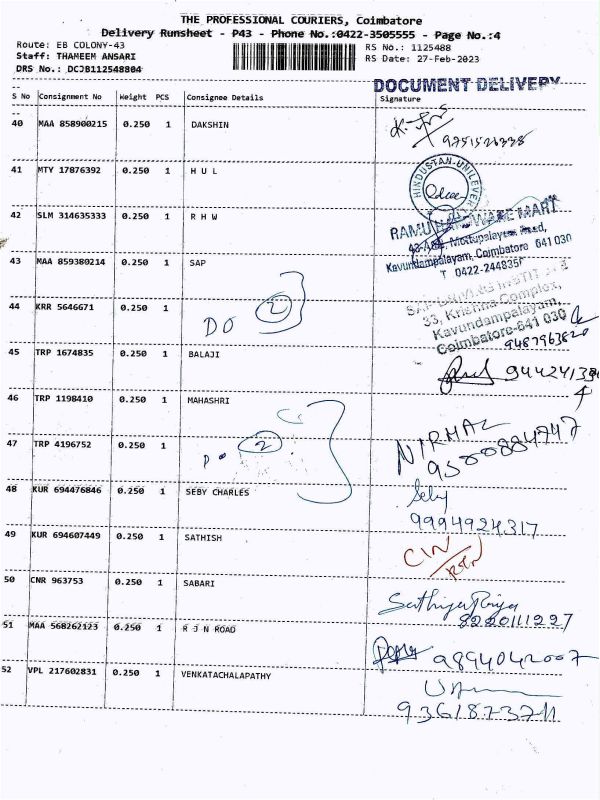 THE PROFESSIONAL COURIERS, Coimbatore
Delivery Runsheet - P43 - Phone No.:0422-3505555 - Page No.:4
Route: EB COLONY-43
RS No.: 1125488
Staff: THAMEEM ANSARI
RS Date: 27-Feb-2023
DRS No.: DCJB112548804
DOCUMENT DELIVERY
S No Consignment No Weight PCS Consignee Details Signature
40 MAA 858900215 0.250 1 DAKSHIN
41 MTY 17876392 0.250 1 H U L
HINDUSTAN UNILEVER
42 SLM 314635333 0.250 1 R H W
Mettupalayam Road,
Kavundampalayam, Coimbatore 641 030
43 MAA 859380214 0.250 1 SAP
33, Krishna Complex,
Kavundampalayam,
Coimbatore-641 030
44 KRR 5646671 0.250 1
DO 2
9487963820
45 TRP 1674835 0.250 1 BALAJI
46 TRP 1198410 0.250 1 MAHASHRI
NIRMAL
9500884747
47 TRP 4196752 0.250 1
2
48 KUR 694476846 0.250 1 SEBY CHARLES
Seby
9994924317
49 KUR 694607449 0.250 1 SATHISH
50 CNR 963753 0.250 1 SABARI
Sathiya Priya
8220111227
51 MAA 568262123 0.250 1 R J N ROAD
9894042007
52 VPL 217602831 0.250 1 VENKATACHALAPATHY